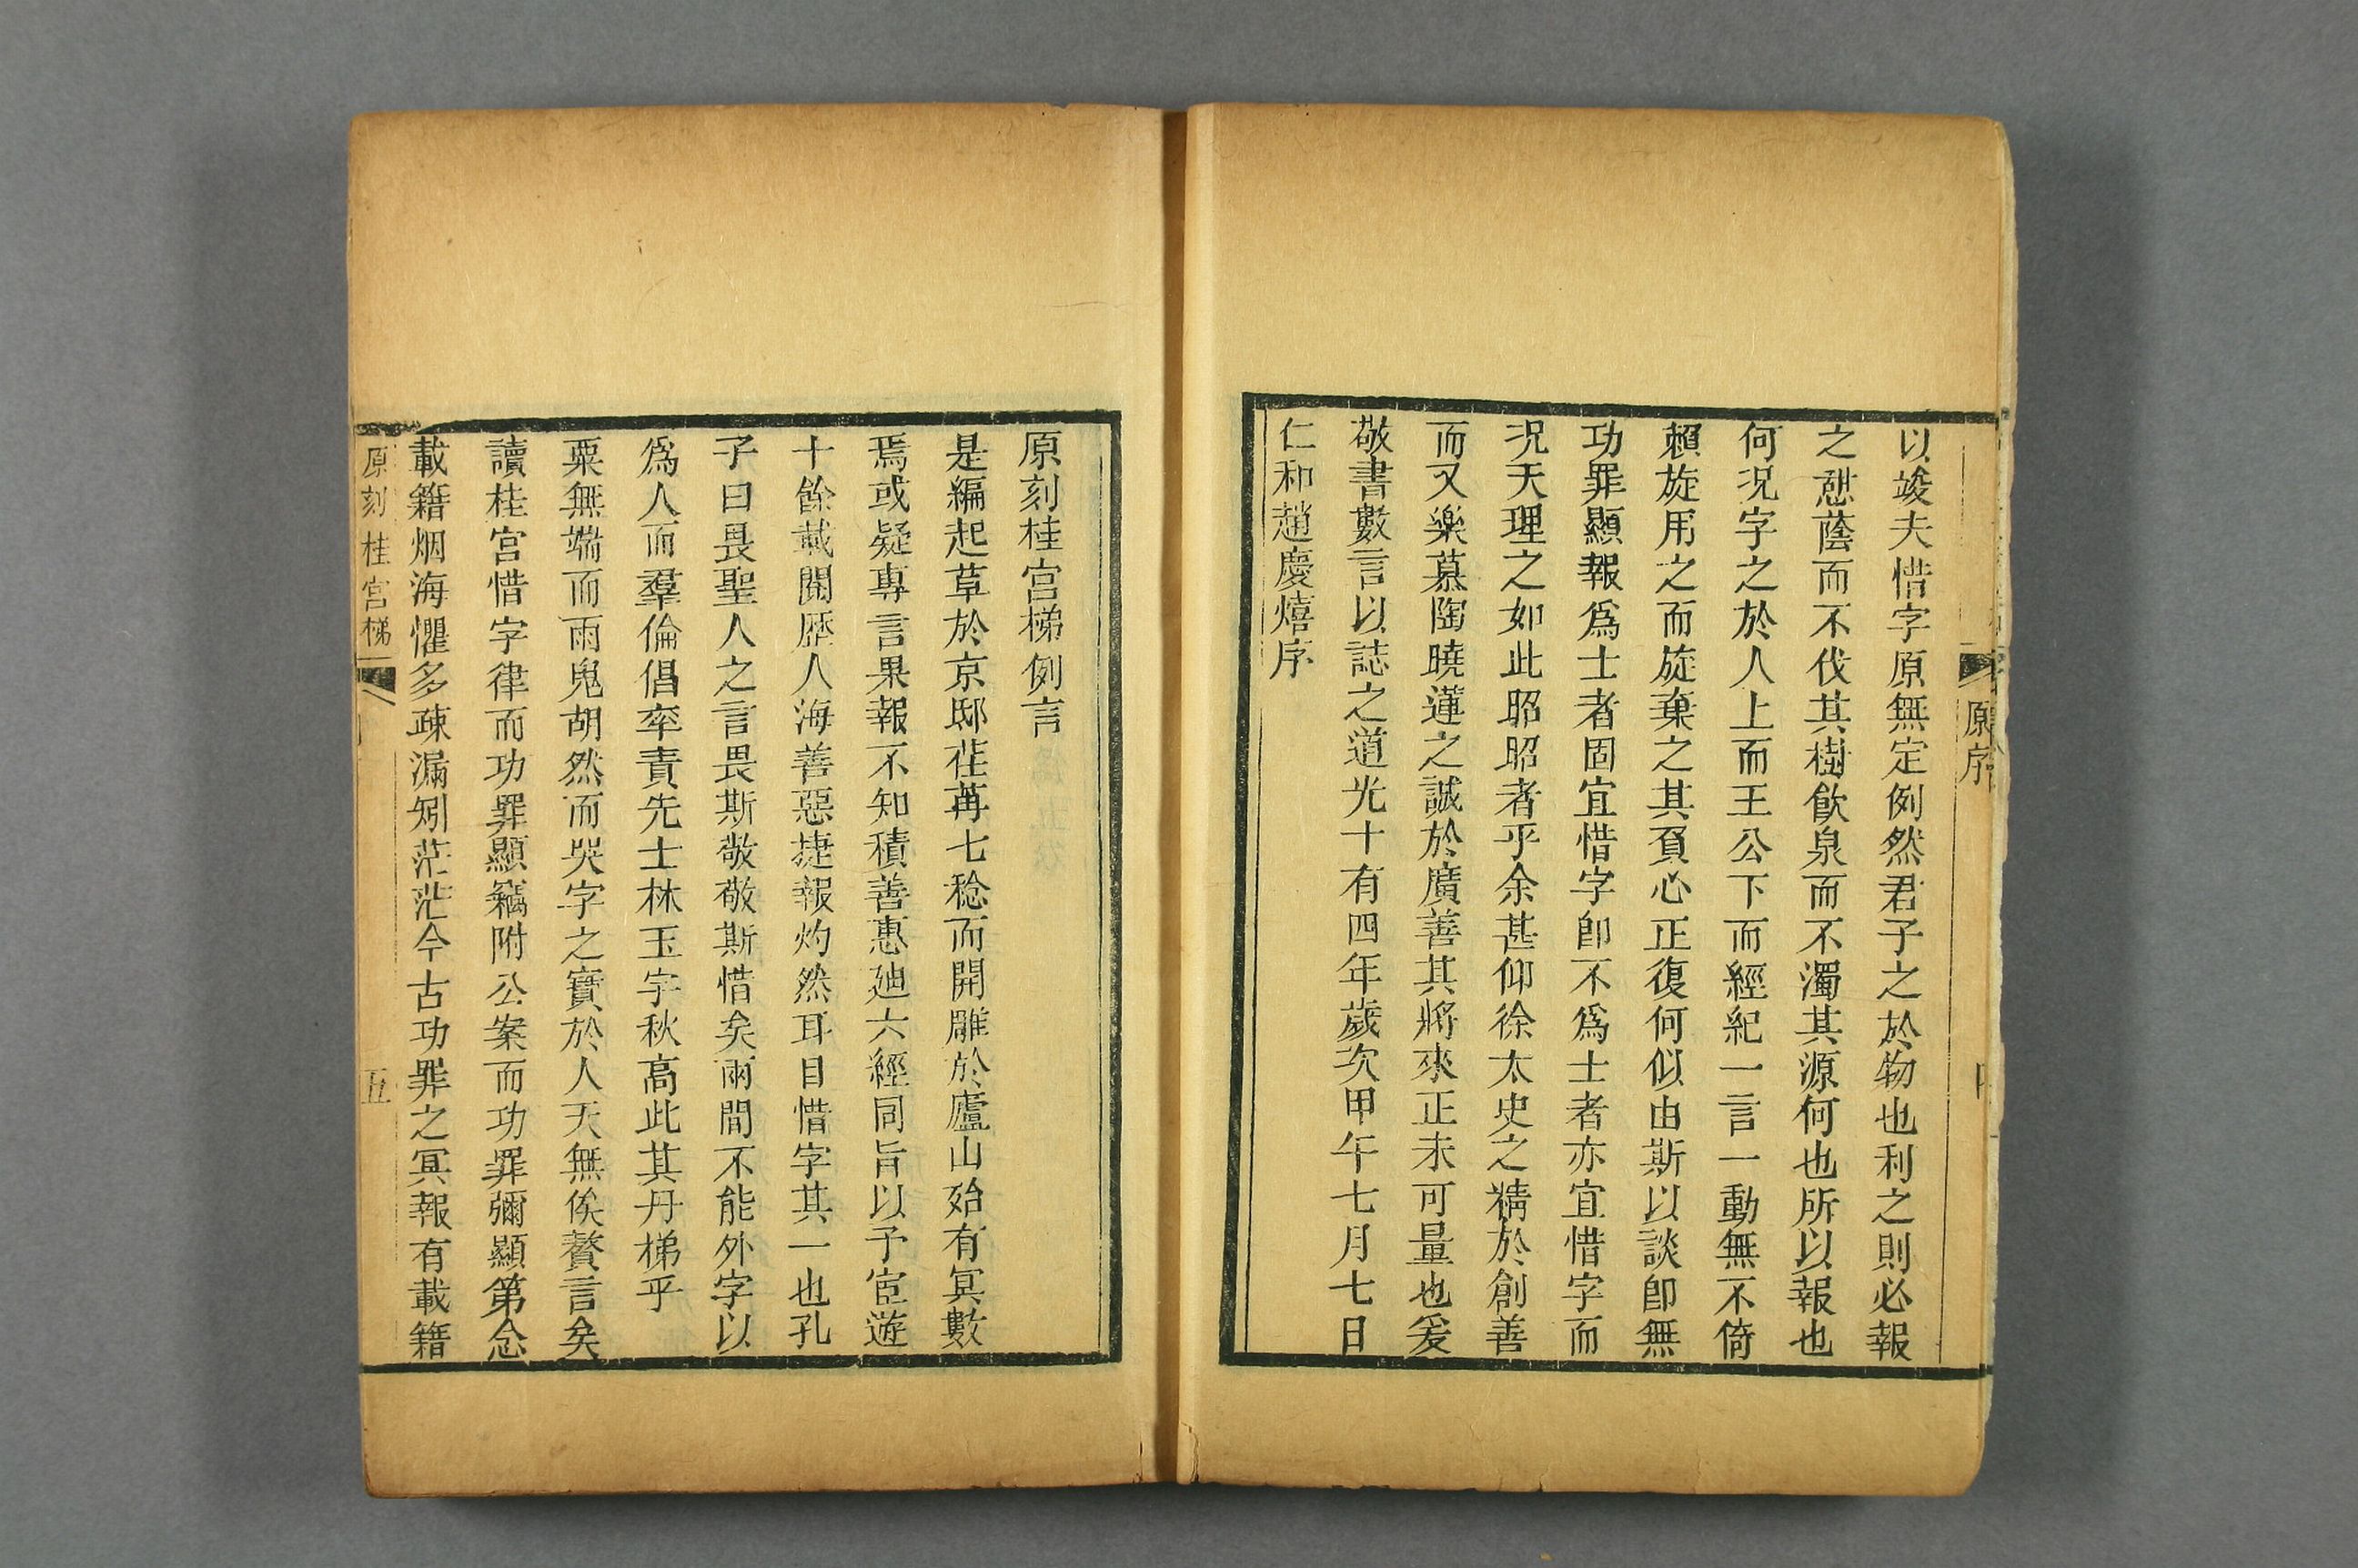 以竣夫惜字原無定例然君子之於物也利之則必報
之憇蔭而不伐其樹飲泉而不濁其源何也所以報也
何况字之於人上而王公下而經紀一言一動無不倚
賴旋用之而旋棄之其負心正復何似由斯以談卽無
功罪顯報爲士者固宜惜字卽不爲士者亦宜惜字而
况天理之如此昭昭者乎余甚仰徐太史之精於創善
而又樂慕陶曉蓮之誠於廣善其將來正未可量也爰
敬書數言以誌之道光十有四年歲次甲午七月七日
仁和趙慶熺序
原序
原刻桂宮梯例言
是編起草於京邸荏苒七稔而開雕於廬山殆有冥數
焉或疑專言果報不知積善惠廸六經同旨以予宦遊
十餘載閱歷人海善惡捷報灼然耳目惜字其一也孔
子曰畏聖人之言畏斯敬敬斯惜矣兩間不能外字以
爲人而羣倫倡率責先士林玉宇秋高此其丹梯乎
粟無端而雨鬼胡然而哭字之寶於人天無俟贅言矣
讀桂宮惜字律而功罪顯竊附公案而功罪彌顯第念
載籍烟海懼多疎漏矧茫茫今古功罪之冥報有載籍
原刻桂宮梯
五